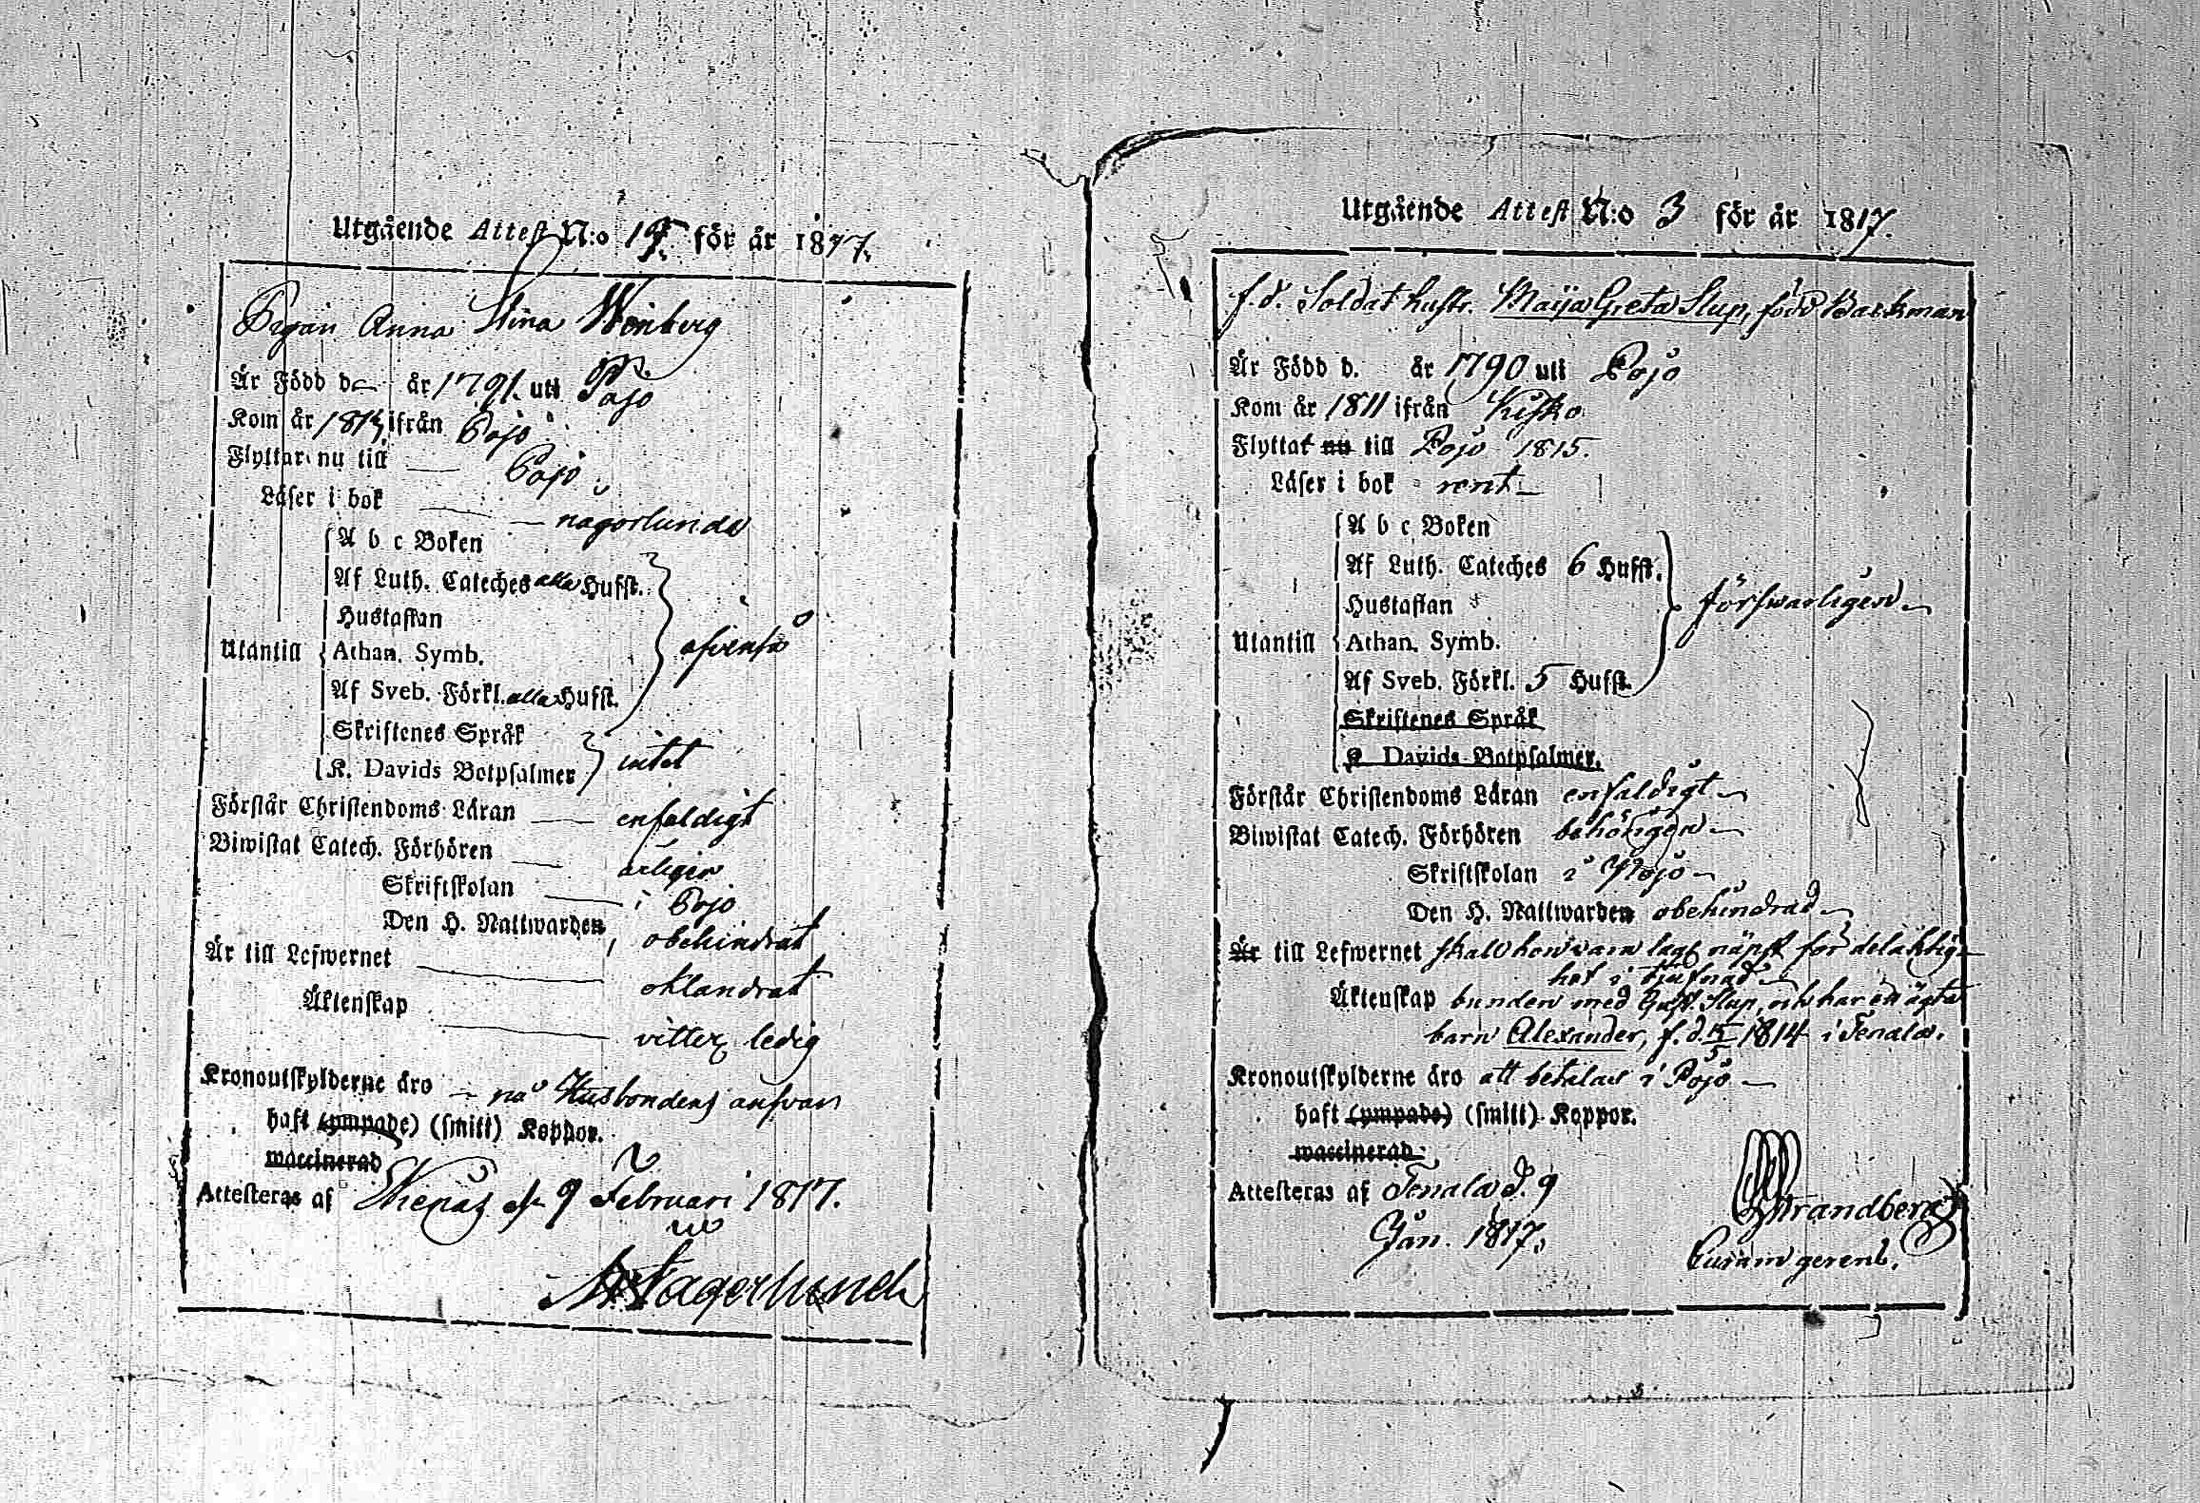 Utgående Attest N:o 19. för år 1817.
Pigan Anna Stina Wenberg
Är Född d. år 1791. uti Pojo
Kom år 1813 ifrån Pojo
Flyttar nu till Pojo
Läser i bok någorlunda
A b c Boken
Af Luth. Cateches alla Hufst.
Hustaflan
Utantill Athan. Symb.
Af Sveb. Förkl. alla Hufst.
Skriftenes Språk
K. Davids Botpsalmer intet
Förstår Christendoms Läran enfaldigt
Biwistat Catech. Förhören årligen
Skriftskolan i Pojo
Den H. Nattwarden obehindrat
Är till Lefwernet oklandrat
Äktenskap vitterl. ledig
Kronoutskylderne äro på Husbondens ansvar
haft (ympade) (smitt) Koppor.
waccinerad
Attesteras af Ekenäs d. 9 Februari 1817.
Utgående Attest N:o 3 för år 1817.
f. d. Soldat hustr. Maija Greta Slup, född Backman
Är Född d. år 1790 uti Pojo
Kom år 1811 ifrån Kisko
Flyttat nu till Pojo 1815.
Läser i bok rent
A b c Boken
Af Luth. Cateches 6 Hufst.
Hustaflan försvarligen
Utantill Athan. Symb.
Af Sveb. Förkl. 5 Hufst.
Skriftenes Språk
K. Davids Botpsalmer.
Förstår Christendoms Läran enfaldigt
Biwistat Catech. Förhören behörigen
Skriftskolan i Pojo
Den H. Nattwarden obehindrad
Är till Lefwernet skall hon vara lagl. näpst för delaktig-
het i
Äktenskap bunden med Gust. Slup, och har ett ägta
barn Alexander, f. d. 15/5 1814 i Tenala.
Kronoutskylderne äro att betalas i Pojo
haft (ympade) (smitt) Koppor.
waccinerad
Attesteras af Tenala d. 9
Jan. 1817.
Strandberg
Curam gerens.